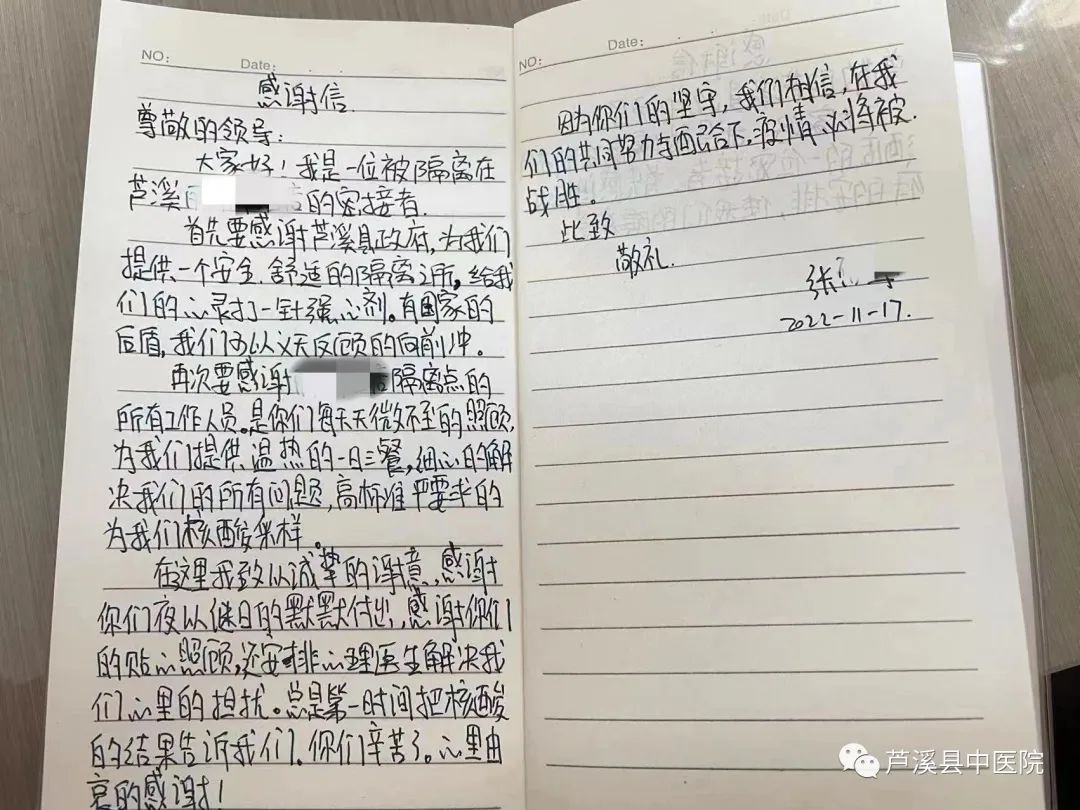 NO:
Date:
感谢信.
尊敬的领导:
大家好！我是一位被隔离在
芦溪 的密接者.
首先要感谢芦溪县政府,为我们
提供一个安全.舒适的隔离之所,给我
们的心灵打一针强心剂。有国家的
后盾,我们可以义无反顾的向前冲。
再次要感谢 隔离点的
所有工作人员。是你们每天无微不至的照顾,
为我们提供温热的一日三餐,细心的解
决我们的所有问题,高标准严要求的
为我们核酸采样。
在这里我致以诚挚的谢意,感谢
你们夜以继日的默默付出,感谢你们
的贴心照顾,还安排心理医生解决我
们心里的担扰。总是第一时间把核酸
的结果告诉我们.你们辛苦了。心里由
衷的感谢！
NO:
Date:
因为你们的坚守,我们相信,在我
们的共同努力与配合下,疫情必将被
战胜。
此致
敬礼.
张
2022-11-17.
芦溪县中医院